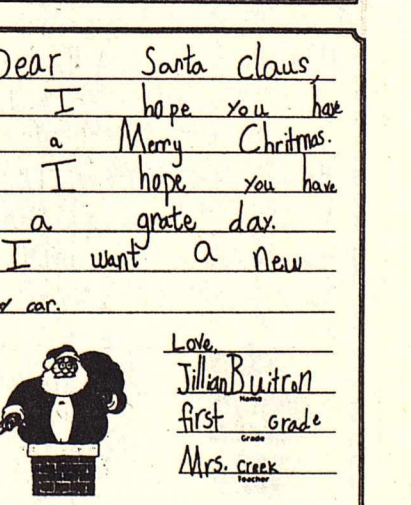 Dear Santa Claus,
I hope you have
a Merry Chritmas.
I hope you have
a grate day.
I want a new
car.
Love,
Jillian Buitron
Name
first Grade
Grade
Mrs. Creek
Teacher